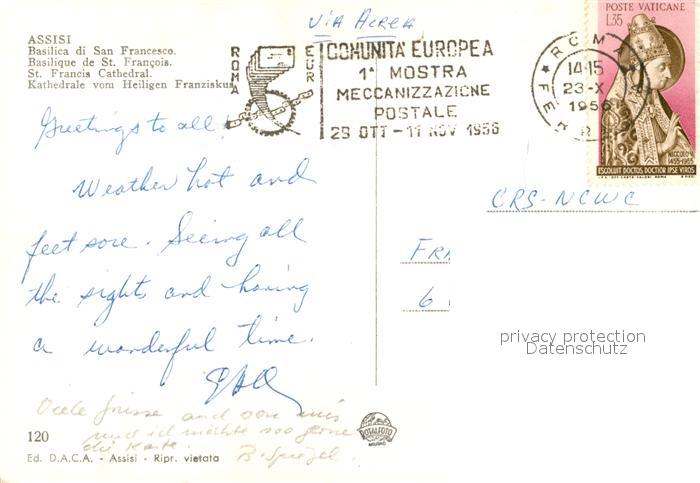 Via Aerea
ASSISI
Basilica di San Francesco.
Basilique de St. François.
St. Francis Cathedral.
Kathedrale vom Heiligen Franziskus
ROMA
EUR
COMUNITA' EUROPEA
1ª MOSTRA
MECCANIZZAZIONE
POSTALE
29 OTT - 11 NOV 1956
ROMA
14-15
23-X
1956
FERR
POSTE VATICANE
L.35
NICCOLO V
1455-1955
ESCOLUIT DOCTOS DOCTIOR IPSE VIROS
Greetings to all!
Weather hot and
feet sore. Seeing all
the sights and having
a wonderful time.
CRS-NCWC
FRA
6
privacy protection
Datenschutz
Viele Grüsse auch von
und ich möchte soo gerne
die Karte.
B. Spiegel.
120
Ed. D.A.C.A. - Assisi - Ripr. vietata
ROTALFOTO
MILANO